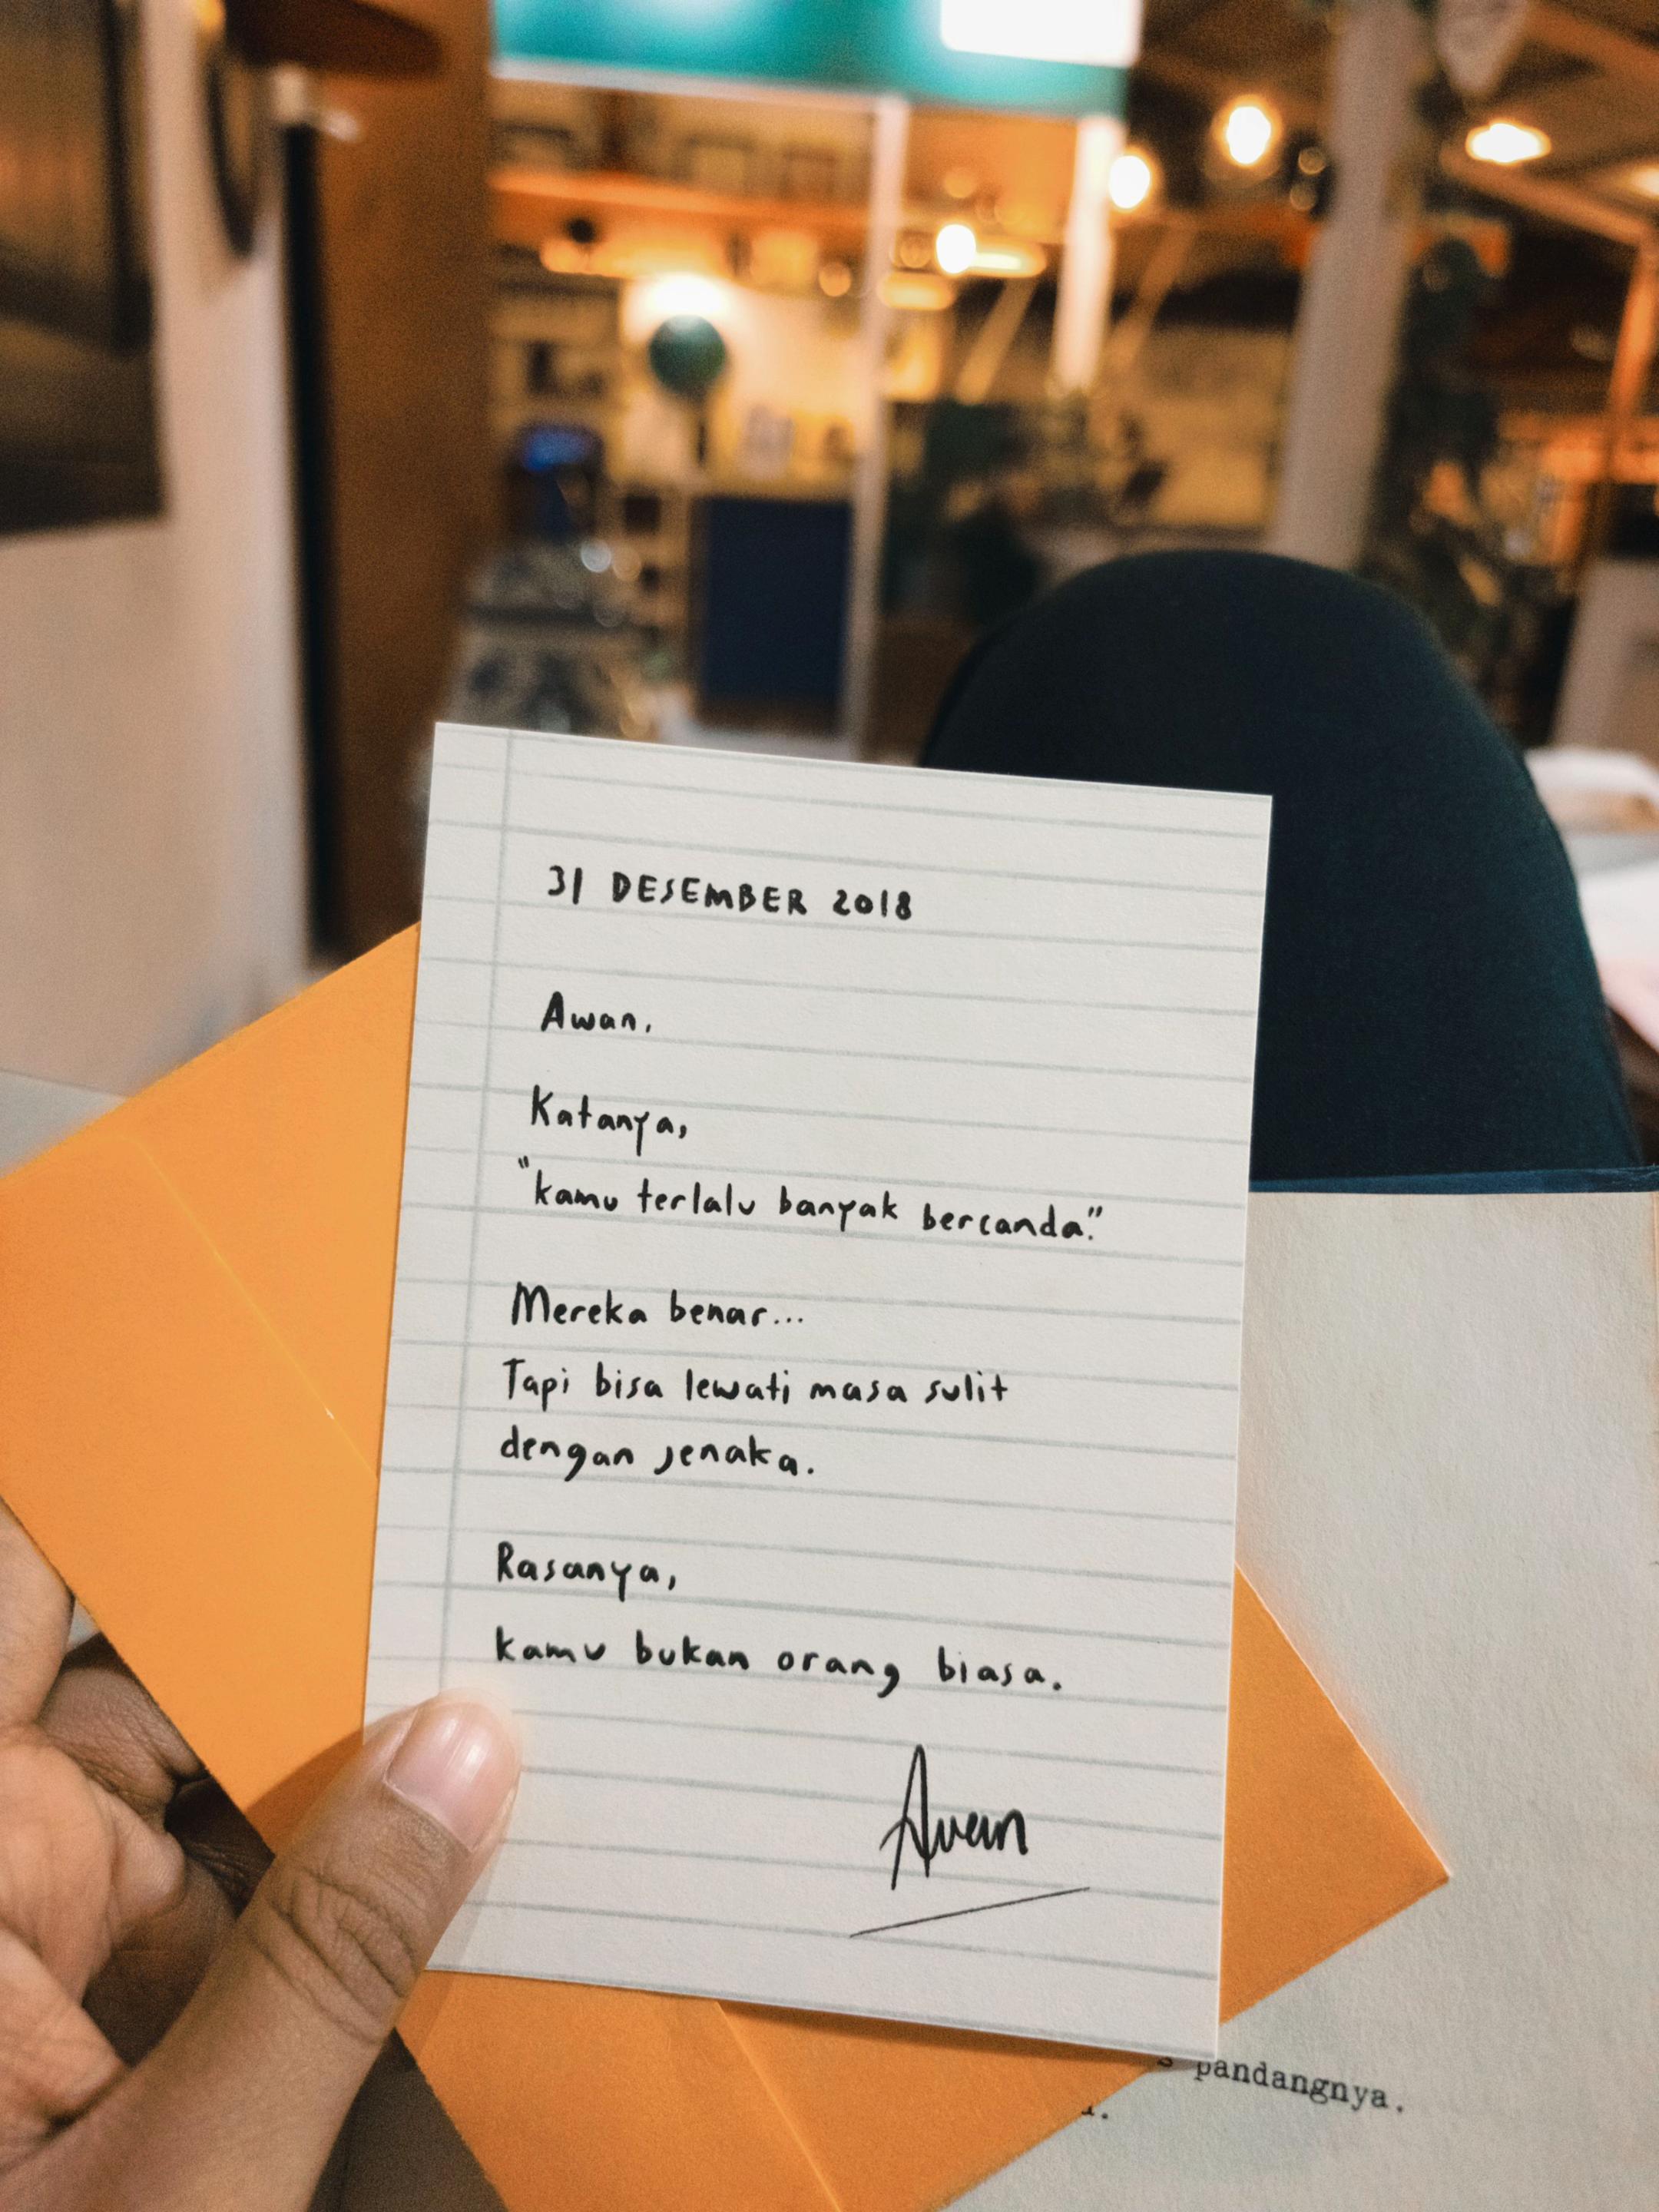 31 DESEMBER 2018
Awan,
Katanya,
"kamu terlalu banyak bercanda."
Mereka benar...
Tapi bisa lewati masa sulit
dengan jenaka.
Rasanya,
kamu bukan orang biasa.
Awan
pandangnya.